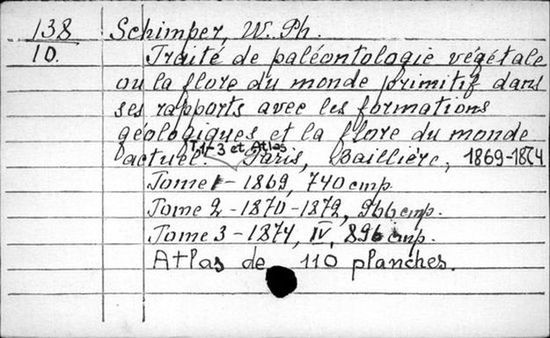 138 Schimper, W. Ph.
10. Traité de paléontologie végétale
ou la flore du monde primitif dans
ses rapports avec les formations
géologiques et la flore du monde
T. 1-3 et Atlas
actuel. Paris, Baillière, 1869-1874
Tome 1 - 1869, 740 cmp.
Tome 2 - 1870-1872, 966 cmp.
Tome 3 - 1874, IV, 896 cmp.
Atlas de 110 planches.